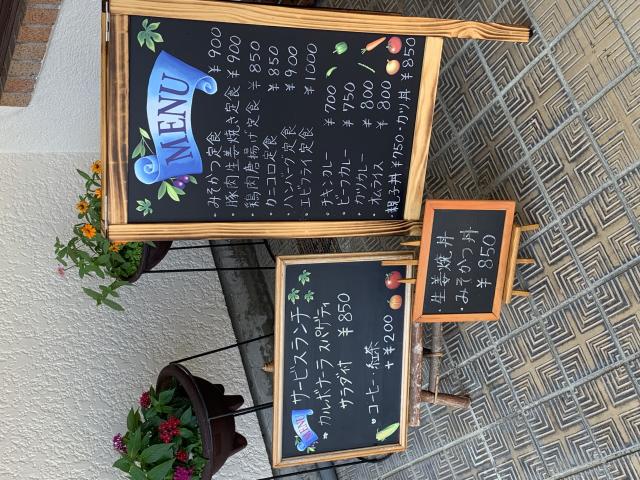 MENU
・みそかつ定食 ¥900
・豚肉生姜焼き定食 ¥900
・鶏肉唐揚げ定食 ¥850
・カニコロ定食 ¥850
・ハンバーグ定食 ¥900
・エビフライ定食 ¥1000
・チキンカレー ¥700
・ビーフカレー ¥750
・カツカレー ¥800
・オムライス ¥800
・親子丼 ¥750・カツ丼 ¥850
MENU
サービスランチ
カルボナーラスパゲティ
サラダ付 ¥850
コーヒー・紅茶
+¥200
・生姜焼丼
・みそかつ丼
¥850